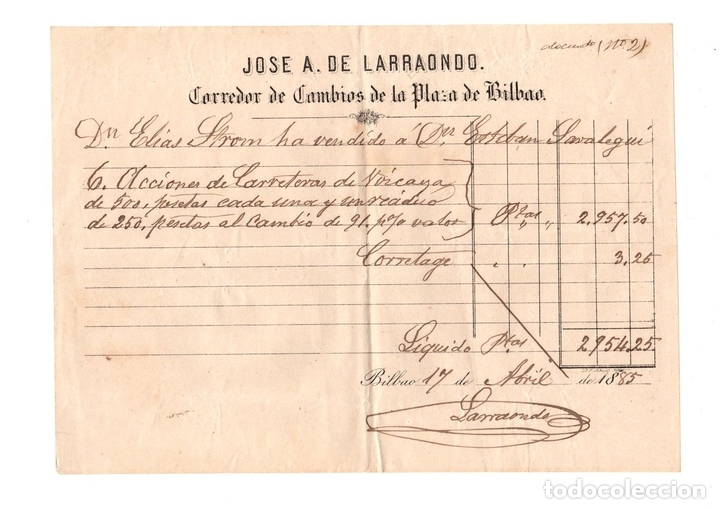 documento (Nº 2)
JOSE A. DE LARRAONDO.
Corredor de Cambios de la Plaza de Bilbao.
Dn. Elias Strom ha vendido a Dn. Esteban Savalegui
6. Acciones de Carreteras de Vizcaya
de 500, pesetas cada una y un residuo
de 250, pesetas al cambio de 91. p% valor Ptas " " 2.957.50
Corretage " " 3.25
Líquido Ptas 2954.25
Bilbao 17 de Abril de 1885
Larraondo
todocoleccion